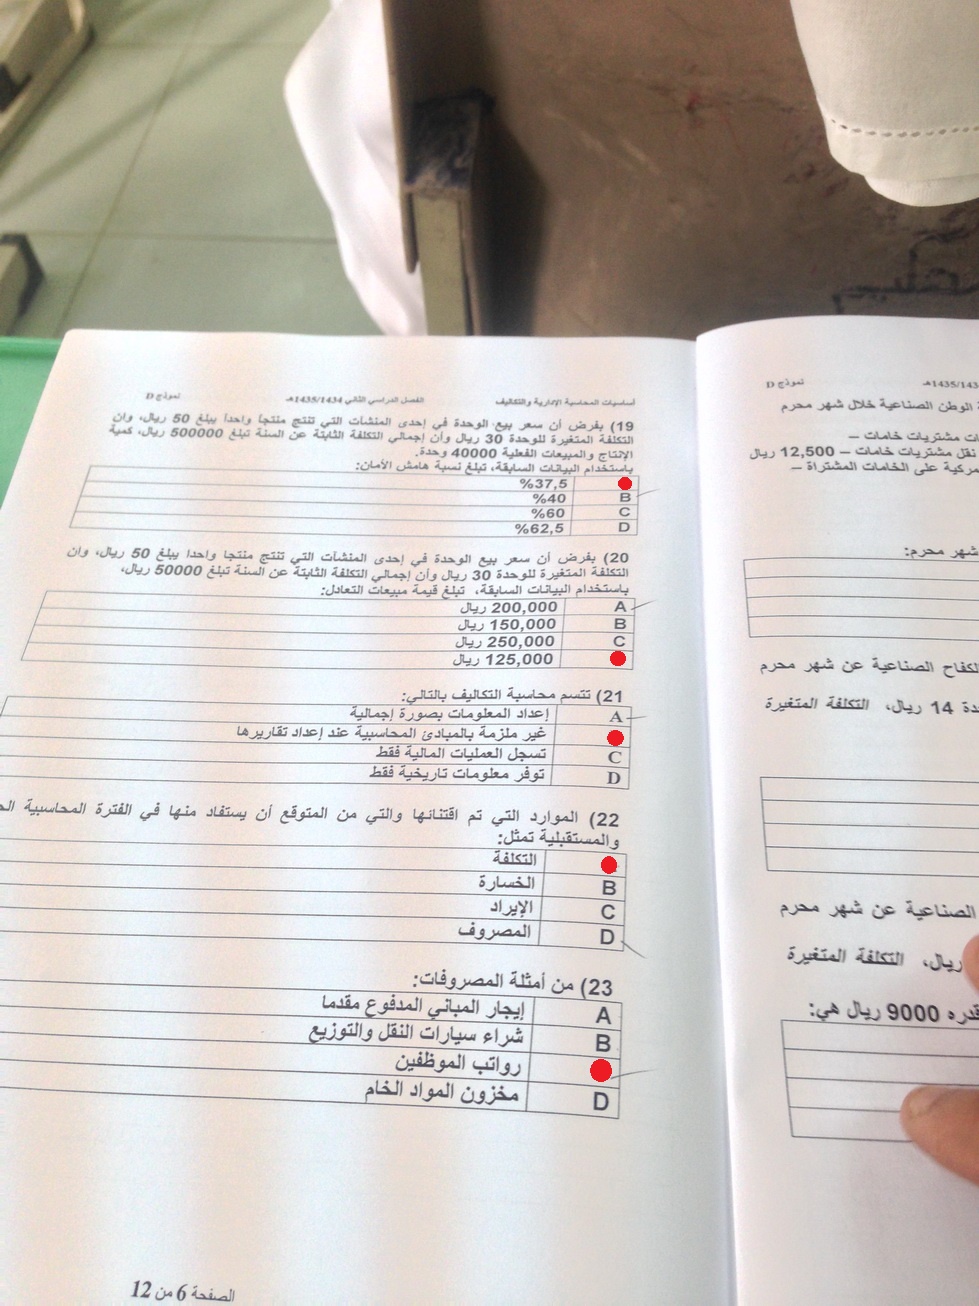 أساسيات المحاسبة الإدارية والتكاليف
الفصل الدراسي الثاني 1435/1434هـ
نموذج D
19) بفرض أن سعر بيع الوحدة في إحدى المنشآت التي تنتج منتجا واحدا يبلغ 50 ريال، وان
التكلفة المتغيرة للوحدة 30 ريال وأن إجمالي التكلفة الثابتة عن السنة تبلغ 500000 ريال، كمية
الإنتاج والمبيعات الفعلية 40000 وحدة.
باستخدام البيانات السابقة، تبلغ نسبة هامش الأمان:
%37,5
B %40
C %60
D %62,5
20) بفرض أن سعر بيع الوحدة في إحدى المنشآت التي تنتج منتجا واحدا يبلغ 50 ريال، وان
التكلفة المتغيرة للوحدة 30 ريال وأن إجمالي التكلفة الثابتة عن السنة تبلغ 50000 ريال،
باستخدام البيانات السابقة، تبلغ قيمة مبيعات التعادل:
A 200,000 ريال
B 150,000 ريال
C 250,000 ريال
125,000 ريال
21) تتسم محاسبة التكاليف بالتالي:
A إعداد المعلومات بصورة إجمالية
غير ملزمة بالمبادئ المحاسبية عند إعداد تقاريرها
C تسجل العمليات المالية فقط
D توفر معلومات تاريخية فقط
22) الموارد التي تم اقتنائها والتي من المتوقع أن يستفاد منها في الفترة المحاسبية
والمستقبلية تمثل:
التكلفة
B الخسارة
C الإيراد
D المصروف
23) من أمثلة المصروفات:
A إيجار المباني المدفوع مقدما
B شراء سيارات النقل والتوزيع
رواتب الموظفين
D مخزون المواد الخام
الصفحة 6 من 12
نموذج D
الوطن الصناعية خلال شهر محرم
مشتريات خامات –
نقل مشتريات خامات – 12,500 ريال
على الخامات المشتراة –
شهر محرم:
الصناعية عن شهر محرم
14 ريال، التكلفة المتغيرة
الصناعية عن شهر محرم
ريال، التكلفة المتغيرة
قدره 9000 ريال هي: